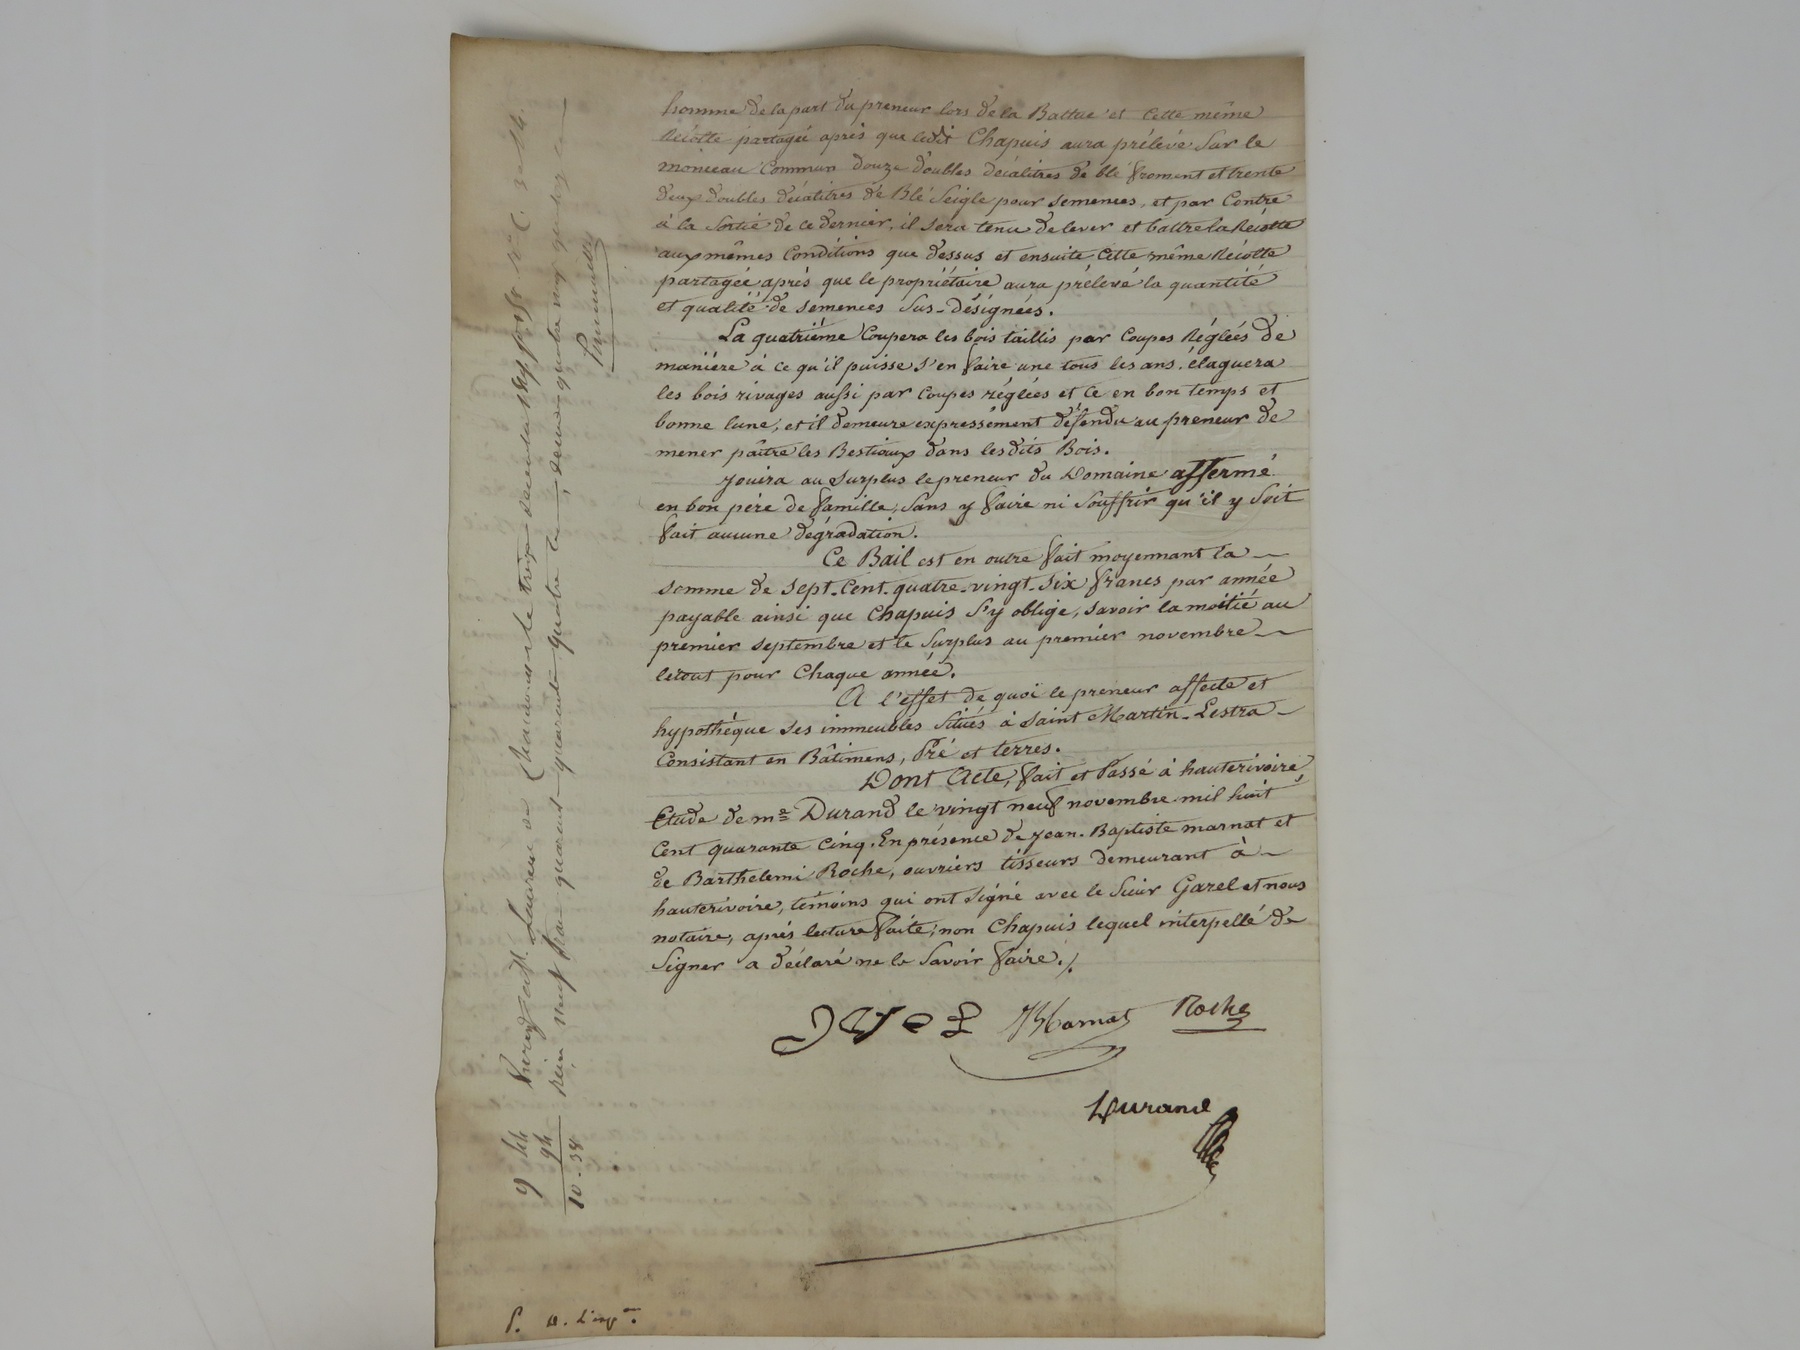 homme de la part du preneur lors de la Battue et cette même
Récolte partagée après que ledit Chapuis aura prélevé Sur le
monceau Commun douze doubles décalitres de blé froment et trente
deux doubles décalitres de Blé Seigle pour semences, et par Contre
à la Sortie de ce dernier, il sera tenu de lever et battre la Récolte
aux mêmes Conditions que dessus et ensuite Cette même Récolte
partagée après que le propriétaire aura prélevé la quantité
et qualité de semences Sus-désignées.
La quatrième Coupera les bois taillis par Coupes Réglées de
manière à ce qu'il puisse s'en faire une tous les ans. élaguera
les bois rivages aussi par Coupes réglées et ce en bon temps et
bonne lune, et il demeure expressément défendu au preneur de
mener paître les Bestiaux dans lesdits Bois.
Jouira au surplus le preneur du Domaine affermé
en bon père de famille, Sans y faire ni Souffrir qu'il y Soit
fait aucune dégradation.
Ce Bail est en outre fait moyennant la
somme de Sept-Cent-quatre-vingt-Six francs par année
payable ainsi que Chapuis s'y oblige, savoir la moitié au
premier septembre et le Surplus au premier novembre
le tout pour Chaque année.
A l'effet de quoi le preneur affecte et
hypothèque ses immeubles Situés à Saint Martin-Lestra
Consistant en Bâtimens, Pré et terres.
Dont Acte, fait et Passé à hauterivoire,
Etude de me Durand le vingt neuf novembre mil huit
Cent quarante Cinq. En présence de Jean-Baptiste marnat et
de Barthelemi Roche, ouvriers tisseurs demeurant à
hauterivoire, témoins qui ont signé avec le Sieur Garel et nous
notaire, après lecture faite, non Chapuis lequel interpellé de
Signer a déclaré ne le Savoir faire./.
JB Marnat Roche
Durand
9 44
94
10-38